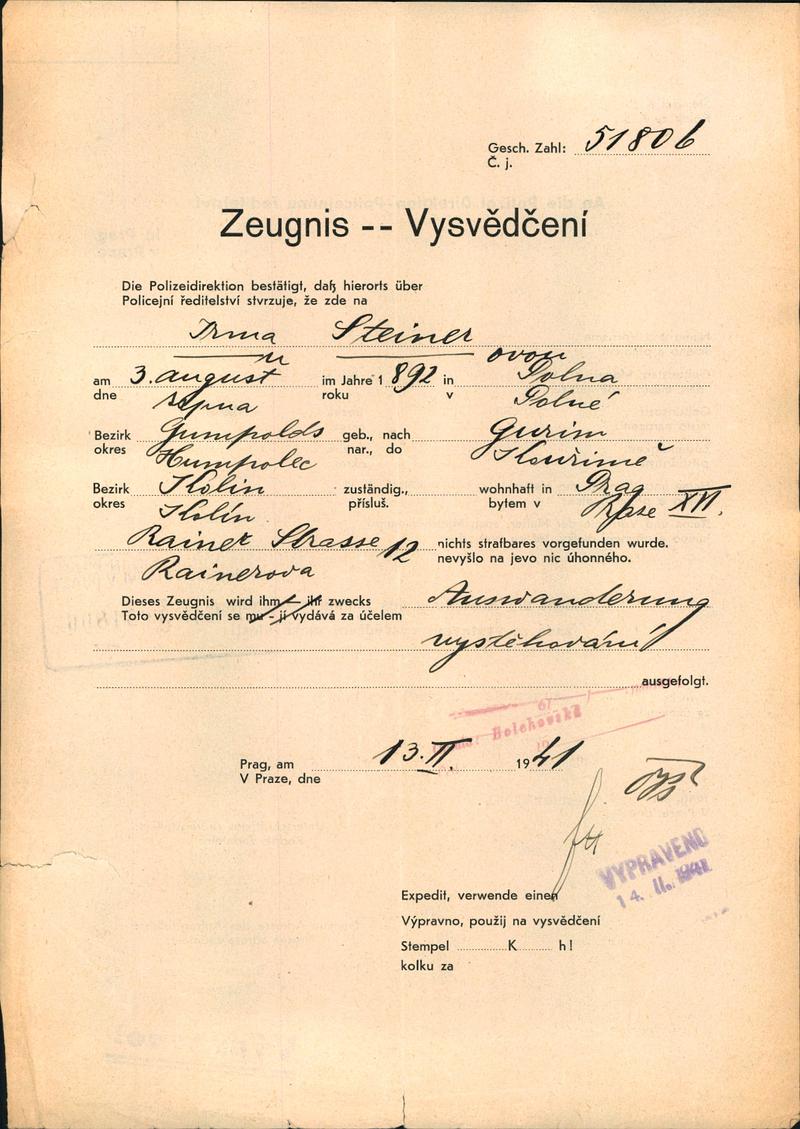 Gesch. Zahl: 51806
Č. j.
Zeugnis -- Vysvědčení
Die Polizeidirektion bestätigt, daß hierorts über
Policejní ředitelství stvrzuje, že zde na
Irma Steiner
ovou
am 3. august im Jahre 1892 in Polna
dne srpna roku v Polné
Bezirk Gumpolds geb., nach Gurim
okres Humpolec nar., do Kouřimě
Bezirk Kolin zuständig., wohnhaft in Prag
okres Kolín přísluš. bytem v Praze XII.
Rainer Strasse 12 nichts strafbares vorgefunden wurde.
Rainerova nevyšlo na jevo nic úhonného.
Dieses Zeugnis wird ihm - ihr zwecks Auswanderung
Toto vysvědčení se mu - jí vydává za účelem
vystěhování
ausgefolgt.
Prag, am 13. II. 1941
V Praze, dne
VYPRAVENO
14. II. 1941
Expedit, verwende einen
Výpravno, použij na vysvědčení
Stempel K h!
kolku za